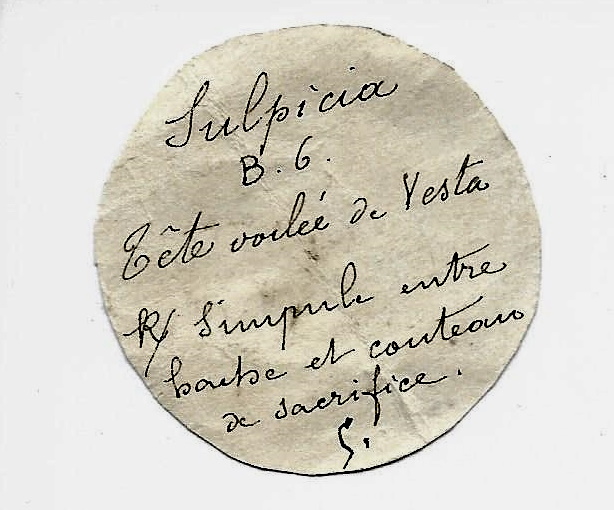 Sulpicia
B. 6.
Tête voilée de Vesta
R/ Simpule entre
hache et couteau
de sacrifice.
S.